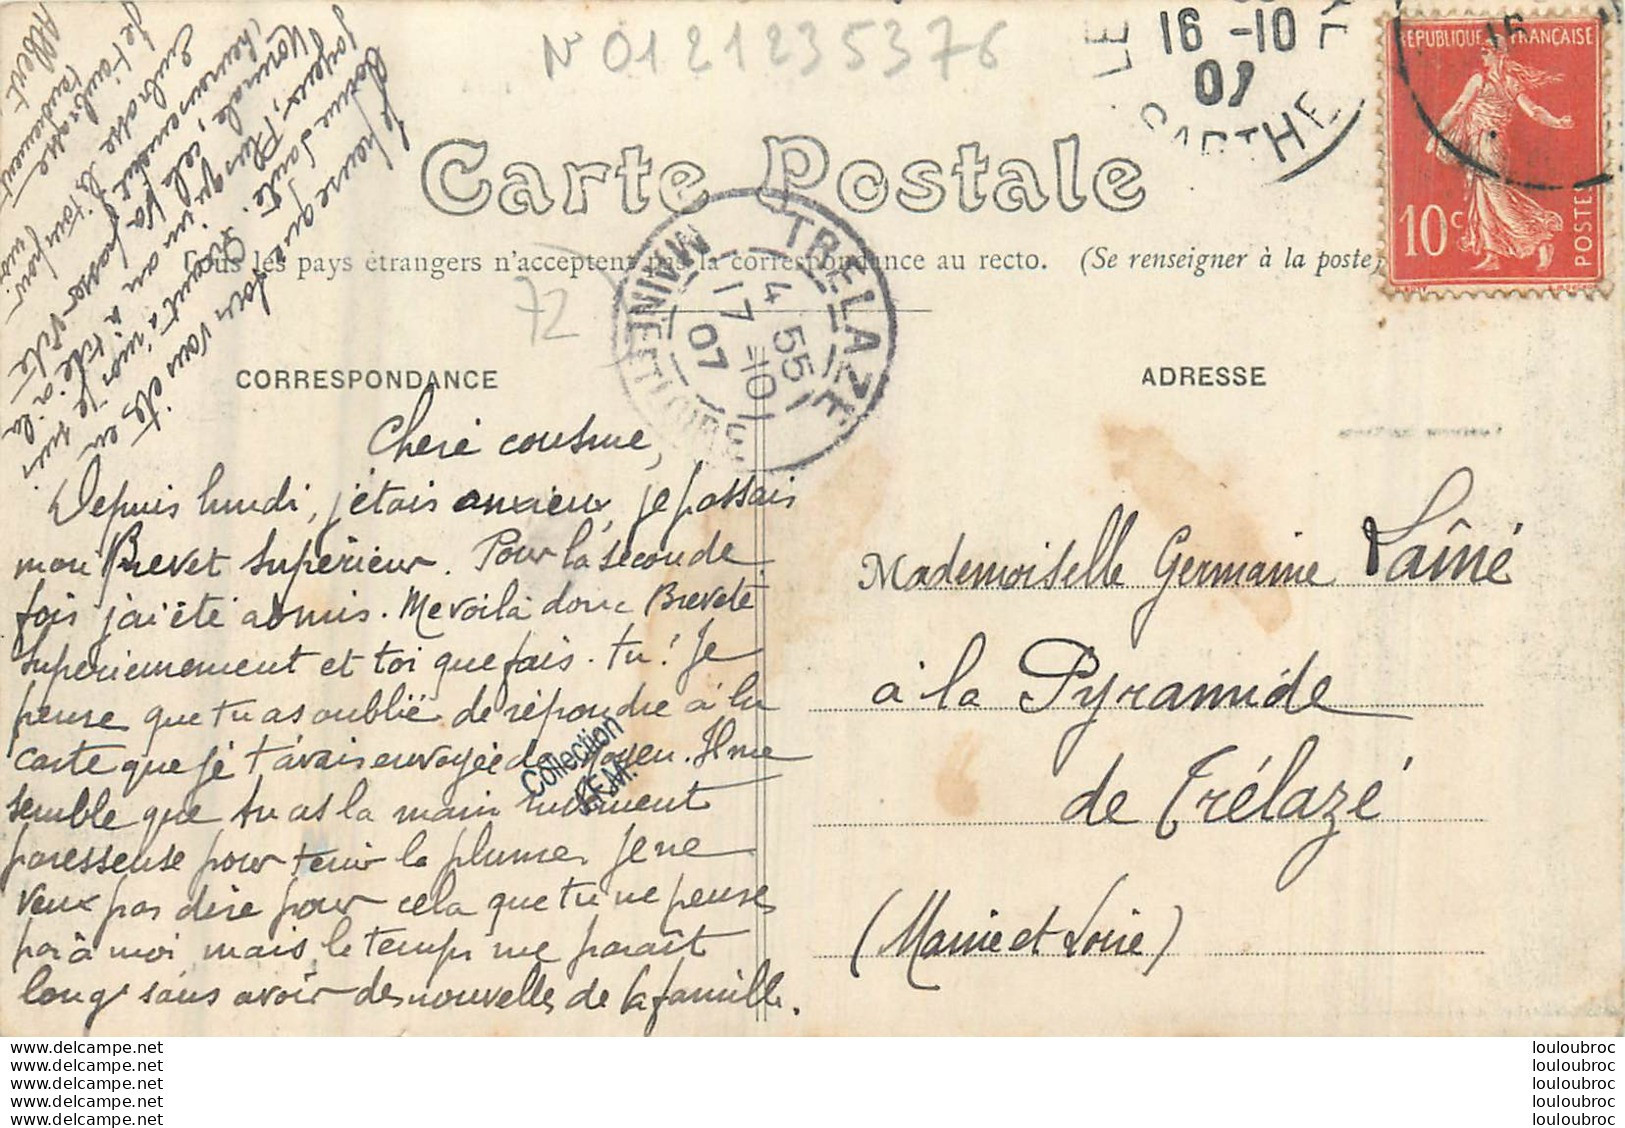 N° 0121235376
LE
16 -10
07
SARTHE
REPUBLIQUE FRANCAISE
10c
POSTES
Carte Postale
Tous les pays étrangers n'acceptent pas la correspondance au recto. (Se renseigner à la poste)
72
TRELAZE
4 55
17 -10
07
MAINE ET LOIRE
CORRESPONDANCE
ADRESSE
Chere cousine,
Depuis lundi, j'etais anxieux, je passais
mon Brevet Supérieur. Pour la seconde
fois j'ai été admis. Me voilà donc Breveté
superieurement et toi que fais-tu? Je
pense que tu as oublié de répondre à la
carte que je t'avais envoyée de Noyen. Il me
semble que tu as la main rudement
paresseuse pour tenir la plume. Je ne
veux pas dire pour cela que tu ne penses
pas à moi mais le temps me parait
long sans avoir des nouvelles de la famille.
Je pense que vous êtes en
bonne santé. Quant à moi je suis
joyeux, Plus qu'un an à tiré à la
Normale, cela va passer vite
heureusement
Embrasse les tous pour moi.
Je t'embrasse
Albert
Collection
F.M.
Mademoiselle Germaine Laîné
à la Pyramide
de Trélazé
(Maine et Loire)
www.delcampe.net
www.delcampe.net
www.delcampe.net
www.delcampe.net
www.delcampe.net
louloubroc
louloubroc
louloubroc
louloubroc
louloubroc